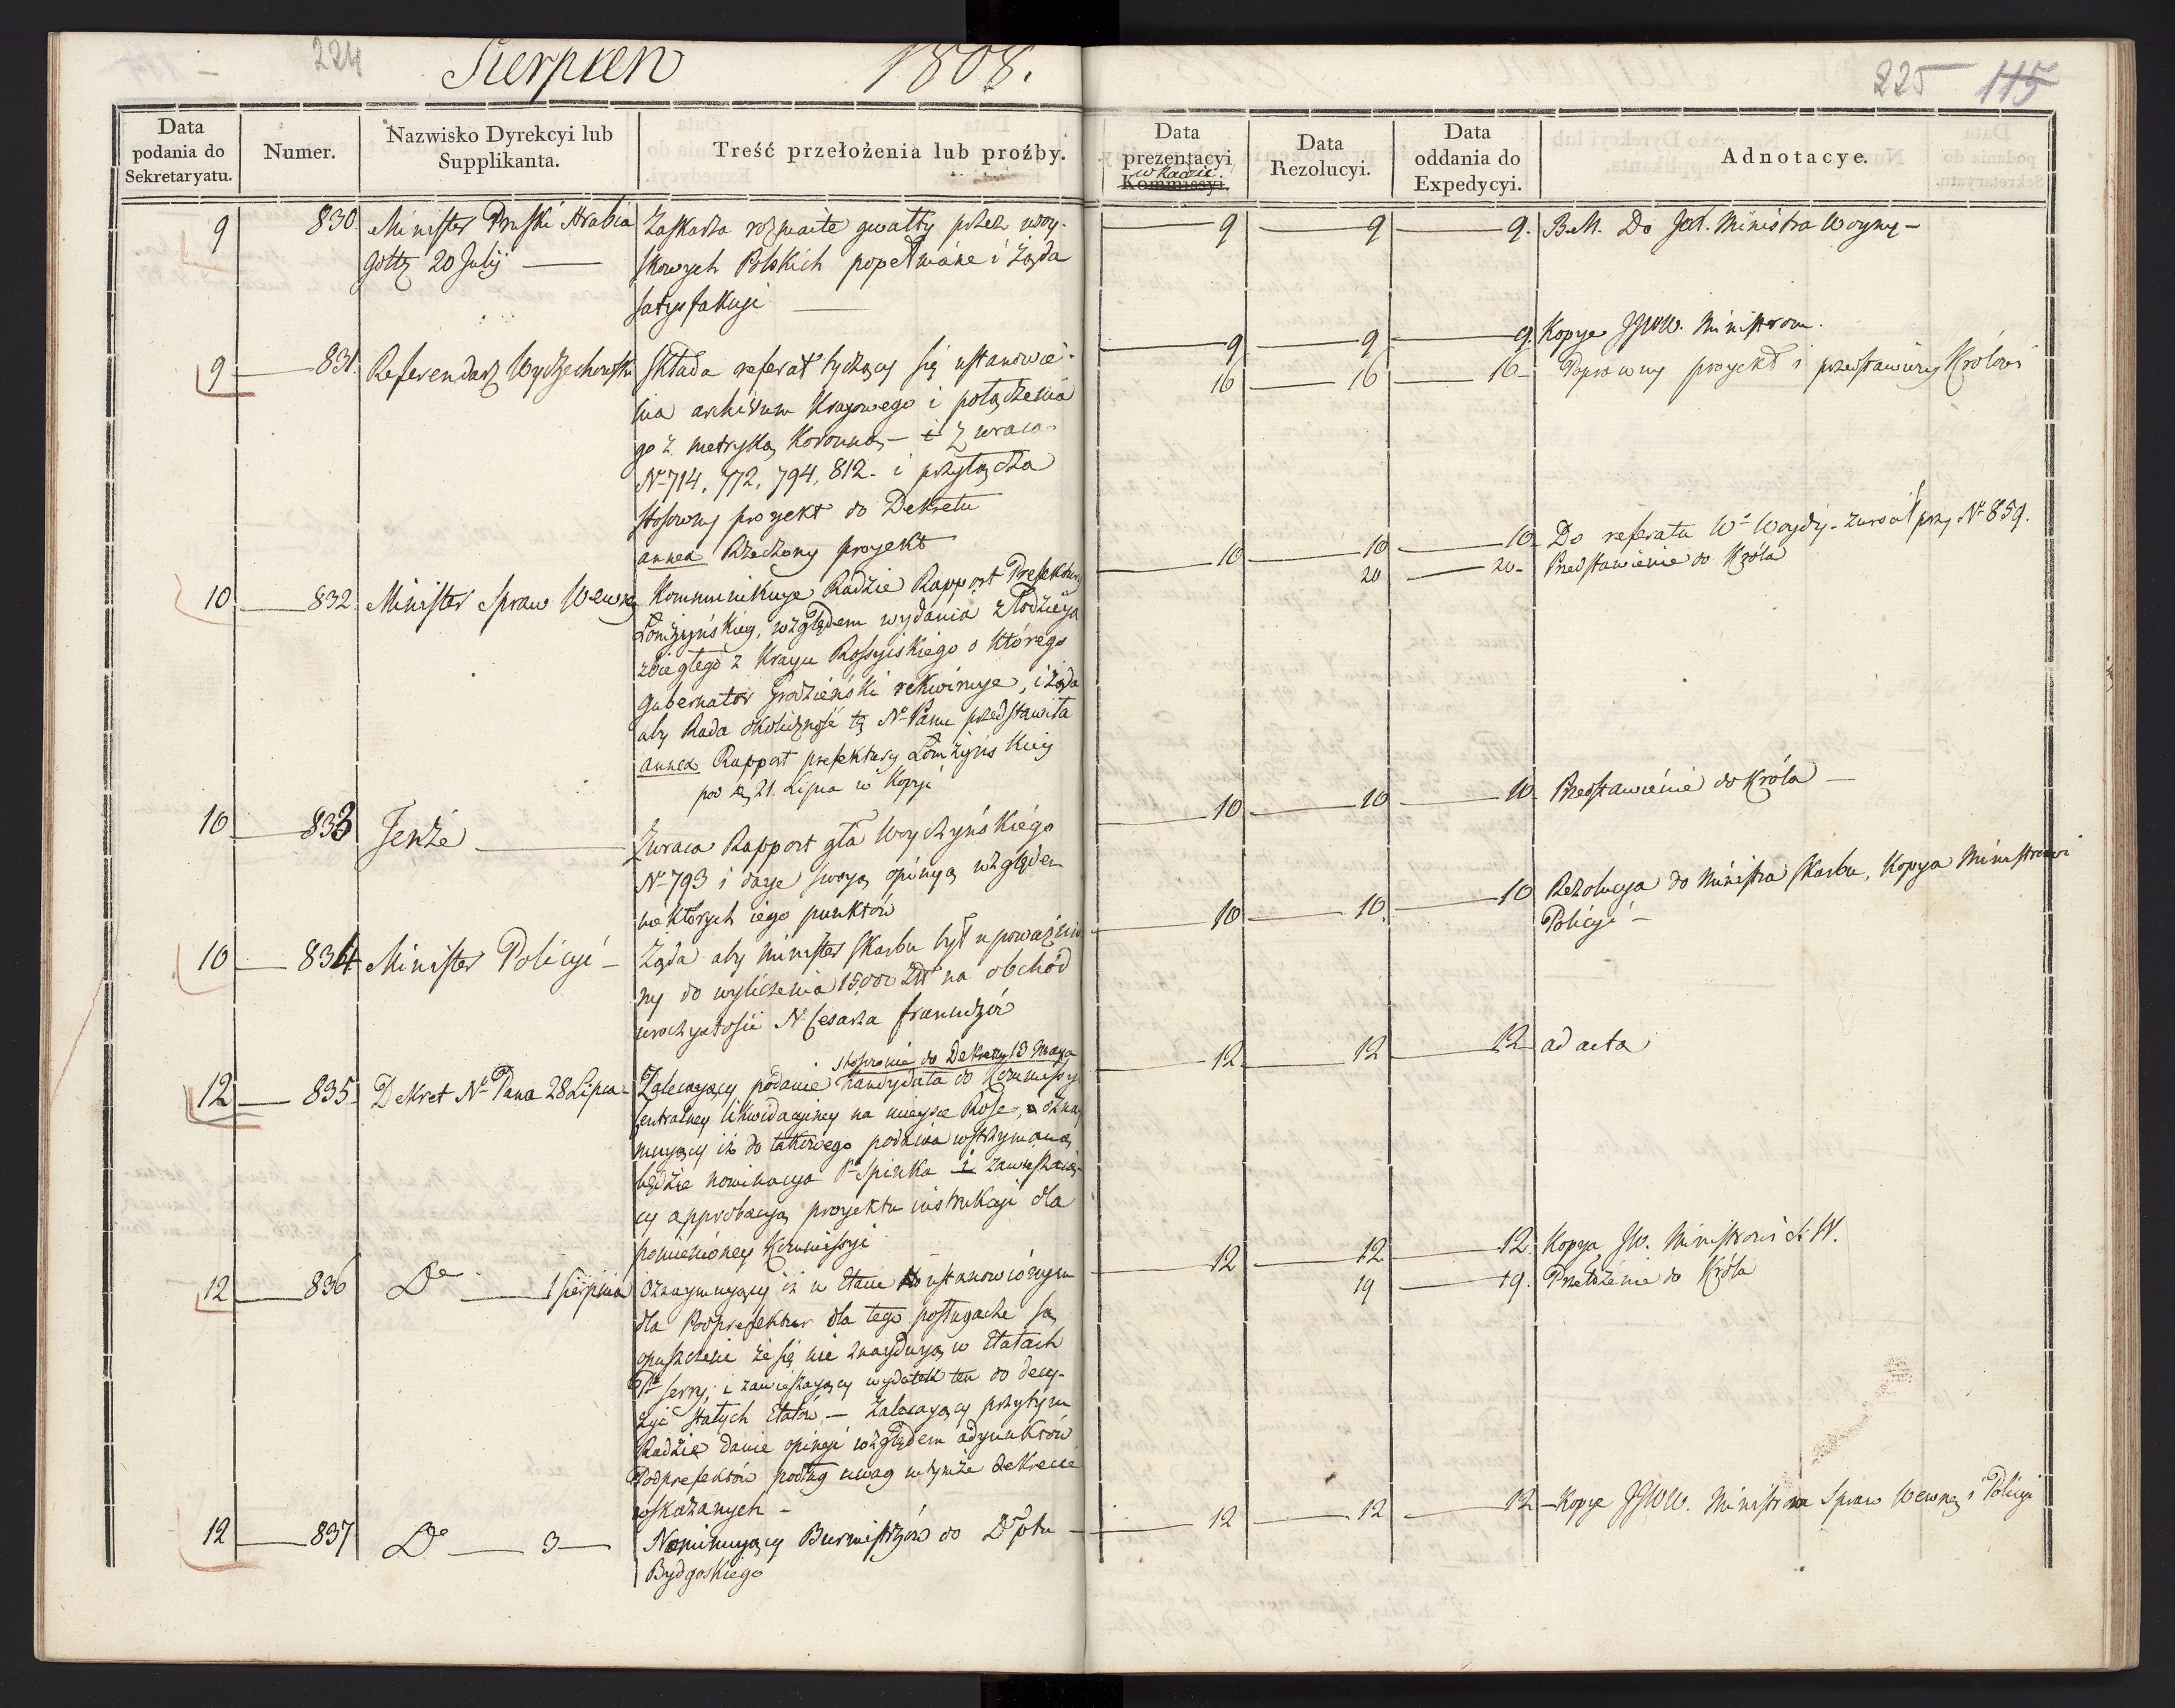 224
Sierpien 1808.
225 115
Data podania do Sekretaryatu.
Numer.
Nazwisko Dyrekcyi lub Supplikanta.
Treść przełożenia lub proźby.
Data prezentacyi w Radzie Kommissyi.
Data Rezolucyi.
Data oddania do Expedycyi.
Adnotacye.
9 830 Minister Pruski Hrabia
Goltz 20 Julij
Zaskarża rozmaite gwałty przez woy-
skowych Polskich popełniane i żąda
satysfakcyi
9 9 9. B.M. Do Ministra Woyny
9 831 Referendarz Wyczechowski
Składa referat tyczący się ustanowie-
nia archiwum Kraiowego i połączenia
go z metryką Koronną - i zwraca
No 714, 772, 794, 812 - i przyłącza
stosowny proyekt do Dekretu
annex Rzeczony proyekt
9 9 9. Kopye JJWW. Ministrom.
16 16 16 Poprawny proyekt i przedstawiony Królowi
10 832 Minister Spraw Wewnę
Kommunikuje Radzie Rapport Prefektury
Łomżyńskiey, względem wydania złodzieja
zbiegłego z Kraju Rossyiskiego o którego
Gubernator Grodzieński rekwiruje, i żąda
aby Rada okoliczność tę No Panu przedstawiła
annex Rapport prefektury Łomżyńskiey
pod d. 21. Lipca w Kopyi
10 10 10 Do referatu Wo Woydy - zwrócił przy No 859.
20 20 Przedstawienie do Króla
10 833 Tenże
Zwraca Rapport gła Woyczyńskiego
No 793 i daje swoją opinyą względem
niektórych iego punktów
10 10 10 Przedstawienie do Króla
10 834 Minister Policyi
Żąda aby Minister Skarbu był upoważnio
ny do wyliczenia 15,000 Zł na obchód
uroczystości N Cesarza francuzów
10 10 10 Rezolucya do Ministra Skarbu, Kopya Ministrowi
Policyi
12 835 Dekret No Pana 28 Lipca
stosownie do Dekretu 13 Maja
Zalecaiący podanie kandydata do Kommissyi
centralney likwidacyiney na mieysce Rose, oznay
muiący iż do takowego podania wstrzymaną
będzie nominacya Po Spinka i zawieszaią
cy approbacyą proyektu instrukcyi dla
pomienioney Kommissyi
12 12 12 ad acta
12 836 Do 1 Sierpnia
Oznaymuiący iż w Etacie ustanowionym
dla Podprefektur dla tego posługacze są
opuszczeni że się nie znayduią w Etatach
Po Serry, i zawieszaiący wydatek ten do decy-
zyi stałych Etatów - Zalecaiący przytym
Radzie danie opinyi względem adjunktów
Podprefektów podług uwag w tymże dekrecie
wskazanych -
12 12 12 Kopya JW. Ministrowi S. W.
19 19. Przełożenie do Króla
12 837 Do 3
Nominuiący Burmistrzów do Dptu
Bydgoskiego
12 12 12 Kopye JJWW. Ministrom Spraw Wewnę i Policyi